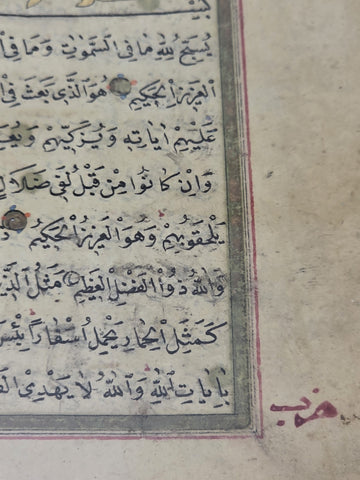 يُسَبِّحُ لِلّٰهِ مَا فِي السَّمٰوَاتِ وَمَا فِي
الْعَزِيزِ الْحَكِيمِ هُوَ الَّذِي بَعَثَ فِي
عَلَيْهِمْ اٰيَاتِهِ وَيُزَكِّيهِمْ وَيُعَ
وَاِنْ كَانُوا مِنْ قَبْلُ لَفِي ضَلَالٍ
يَلْحَقُوا بِهِمْ وَهُوَ الْعَزِيزُ الْحَكِيمُ
وَاللّٰهُ ذُو الْفَضْلِ الْعَظِيمِ مَثَلُ الَّذِينَ
كَمَثَلِ الْحِمَارِ يَحْمِلُ اَسْفَارًا بِئْسَ
بِاٰيَاتِ اللّٰهِ وَاللّٰهُ لَا يَهْدِي الْقَ
حزب